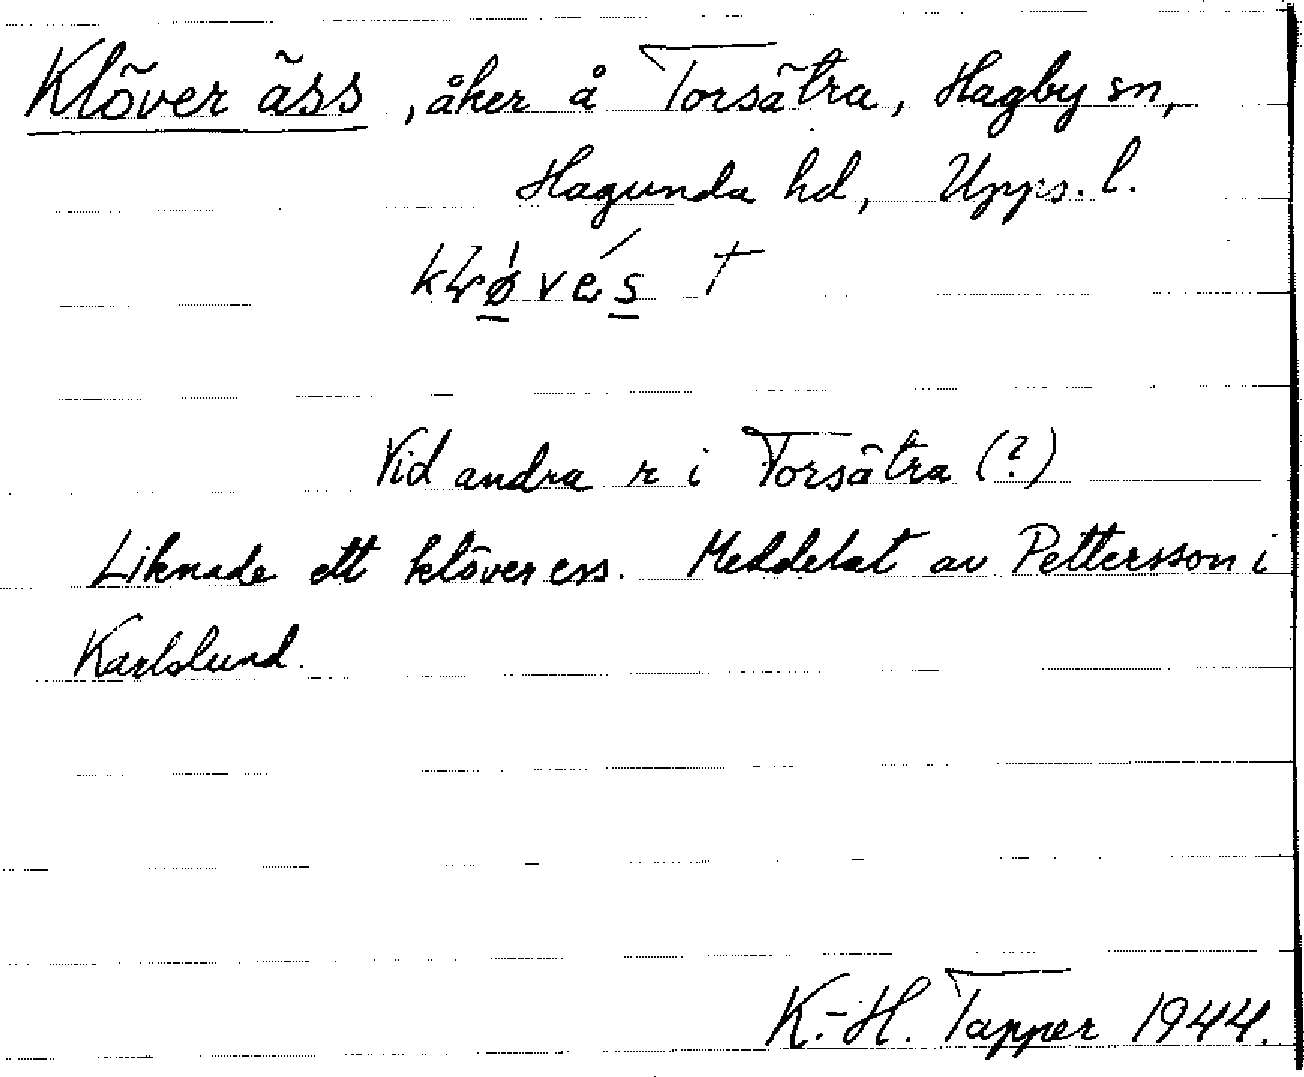 Klöver äss, åker å Torsätra, Hagby sn,
Hagunda hd, Upps. l.
†
Vid andra r i Torsätra (?)
Liknade ett klöver ess. Meddelat av Pettersson i
Karlslund.
K.-H. Tapper 1944.